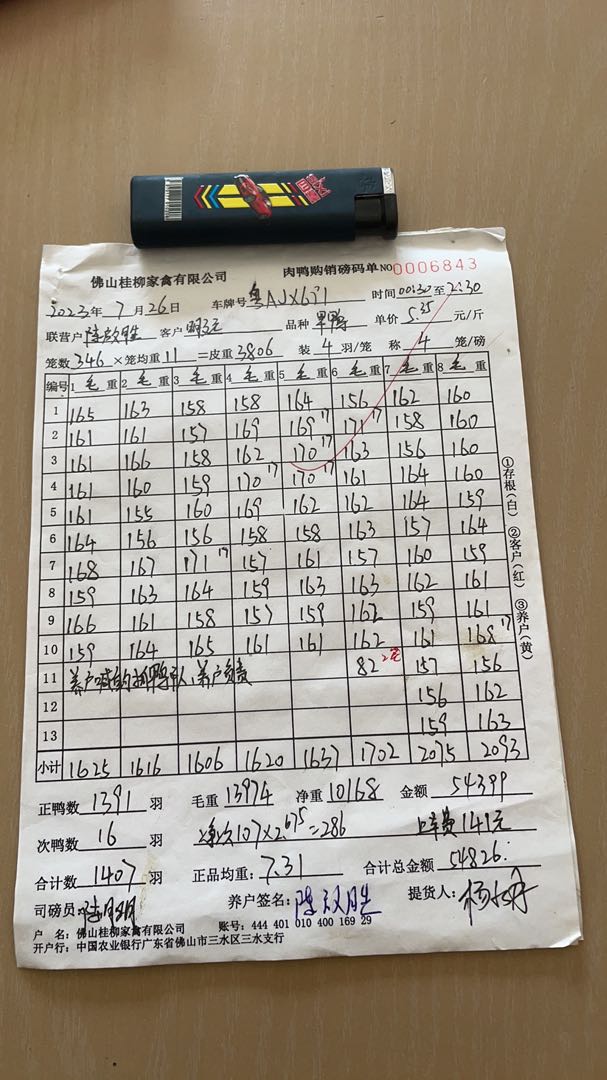 佛山桂柳家禽有限公司 肉鸭购销磅码单 NO 0006843
2023年 7月26日 车牌号 粤AJX6 时间 00:30 至 2:30
联营户 客户 品种 单价 5.35 元/斤
笼数 346 ×笼均重 11 =皮重 3806 装 4 羽/笼 称 4 笼/磅
编号 1 毛 重 2 毛 重 3 毛 重 4 毛 重 5 毛 重 6 毛 重 7 毛 重 8 毛 重
1 165 163 158 158 164 156 162 160
2 161 161 157 169 169 17 171 17 158 160
3 161 166 158 162 170 17 163 156 160
4 161 160 159 170 17 170 17 161 164 160
5 161 155 160 169 162 162 164 159
6 164 156 156 158 158 163 157 164
7 168 167 171 17 157 161 157 160 159
8 159 163 164 159 163 163 162 161
9 166 161 158 157 159 162 159 161
10 159 164 165 161 161 162 161 168 17
11 养户喊的抓鸭工人,养户负责 82 2笼 157 156
12 156 162
13 159 163
小计 1625 1616 1606 1620 1637 1702 2075 2093
①存根(白) ②客户(红) ③养户(黄)
正鸭数 1391 羽 毛重 13974 净重 10168 金额 54399
次鸭数 16 羽 107×2.675=286 上车费141元
合计数 1407 羽 正品均重: 7.31 合计总金额 54826.
司磅员: 养户签名: 提货人:
户 名: 佛山桂柳家禽有限公司 账号: 444 401 010 400 169 29
开户行: 中国农业银行广东省佛山市三水区三水支行